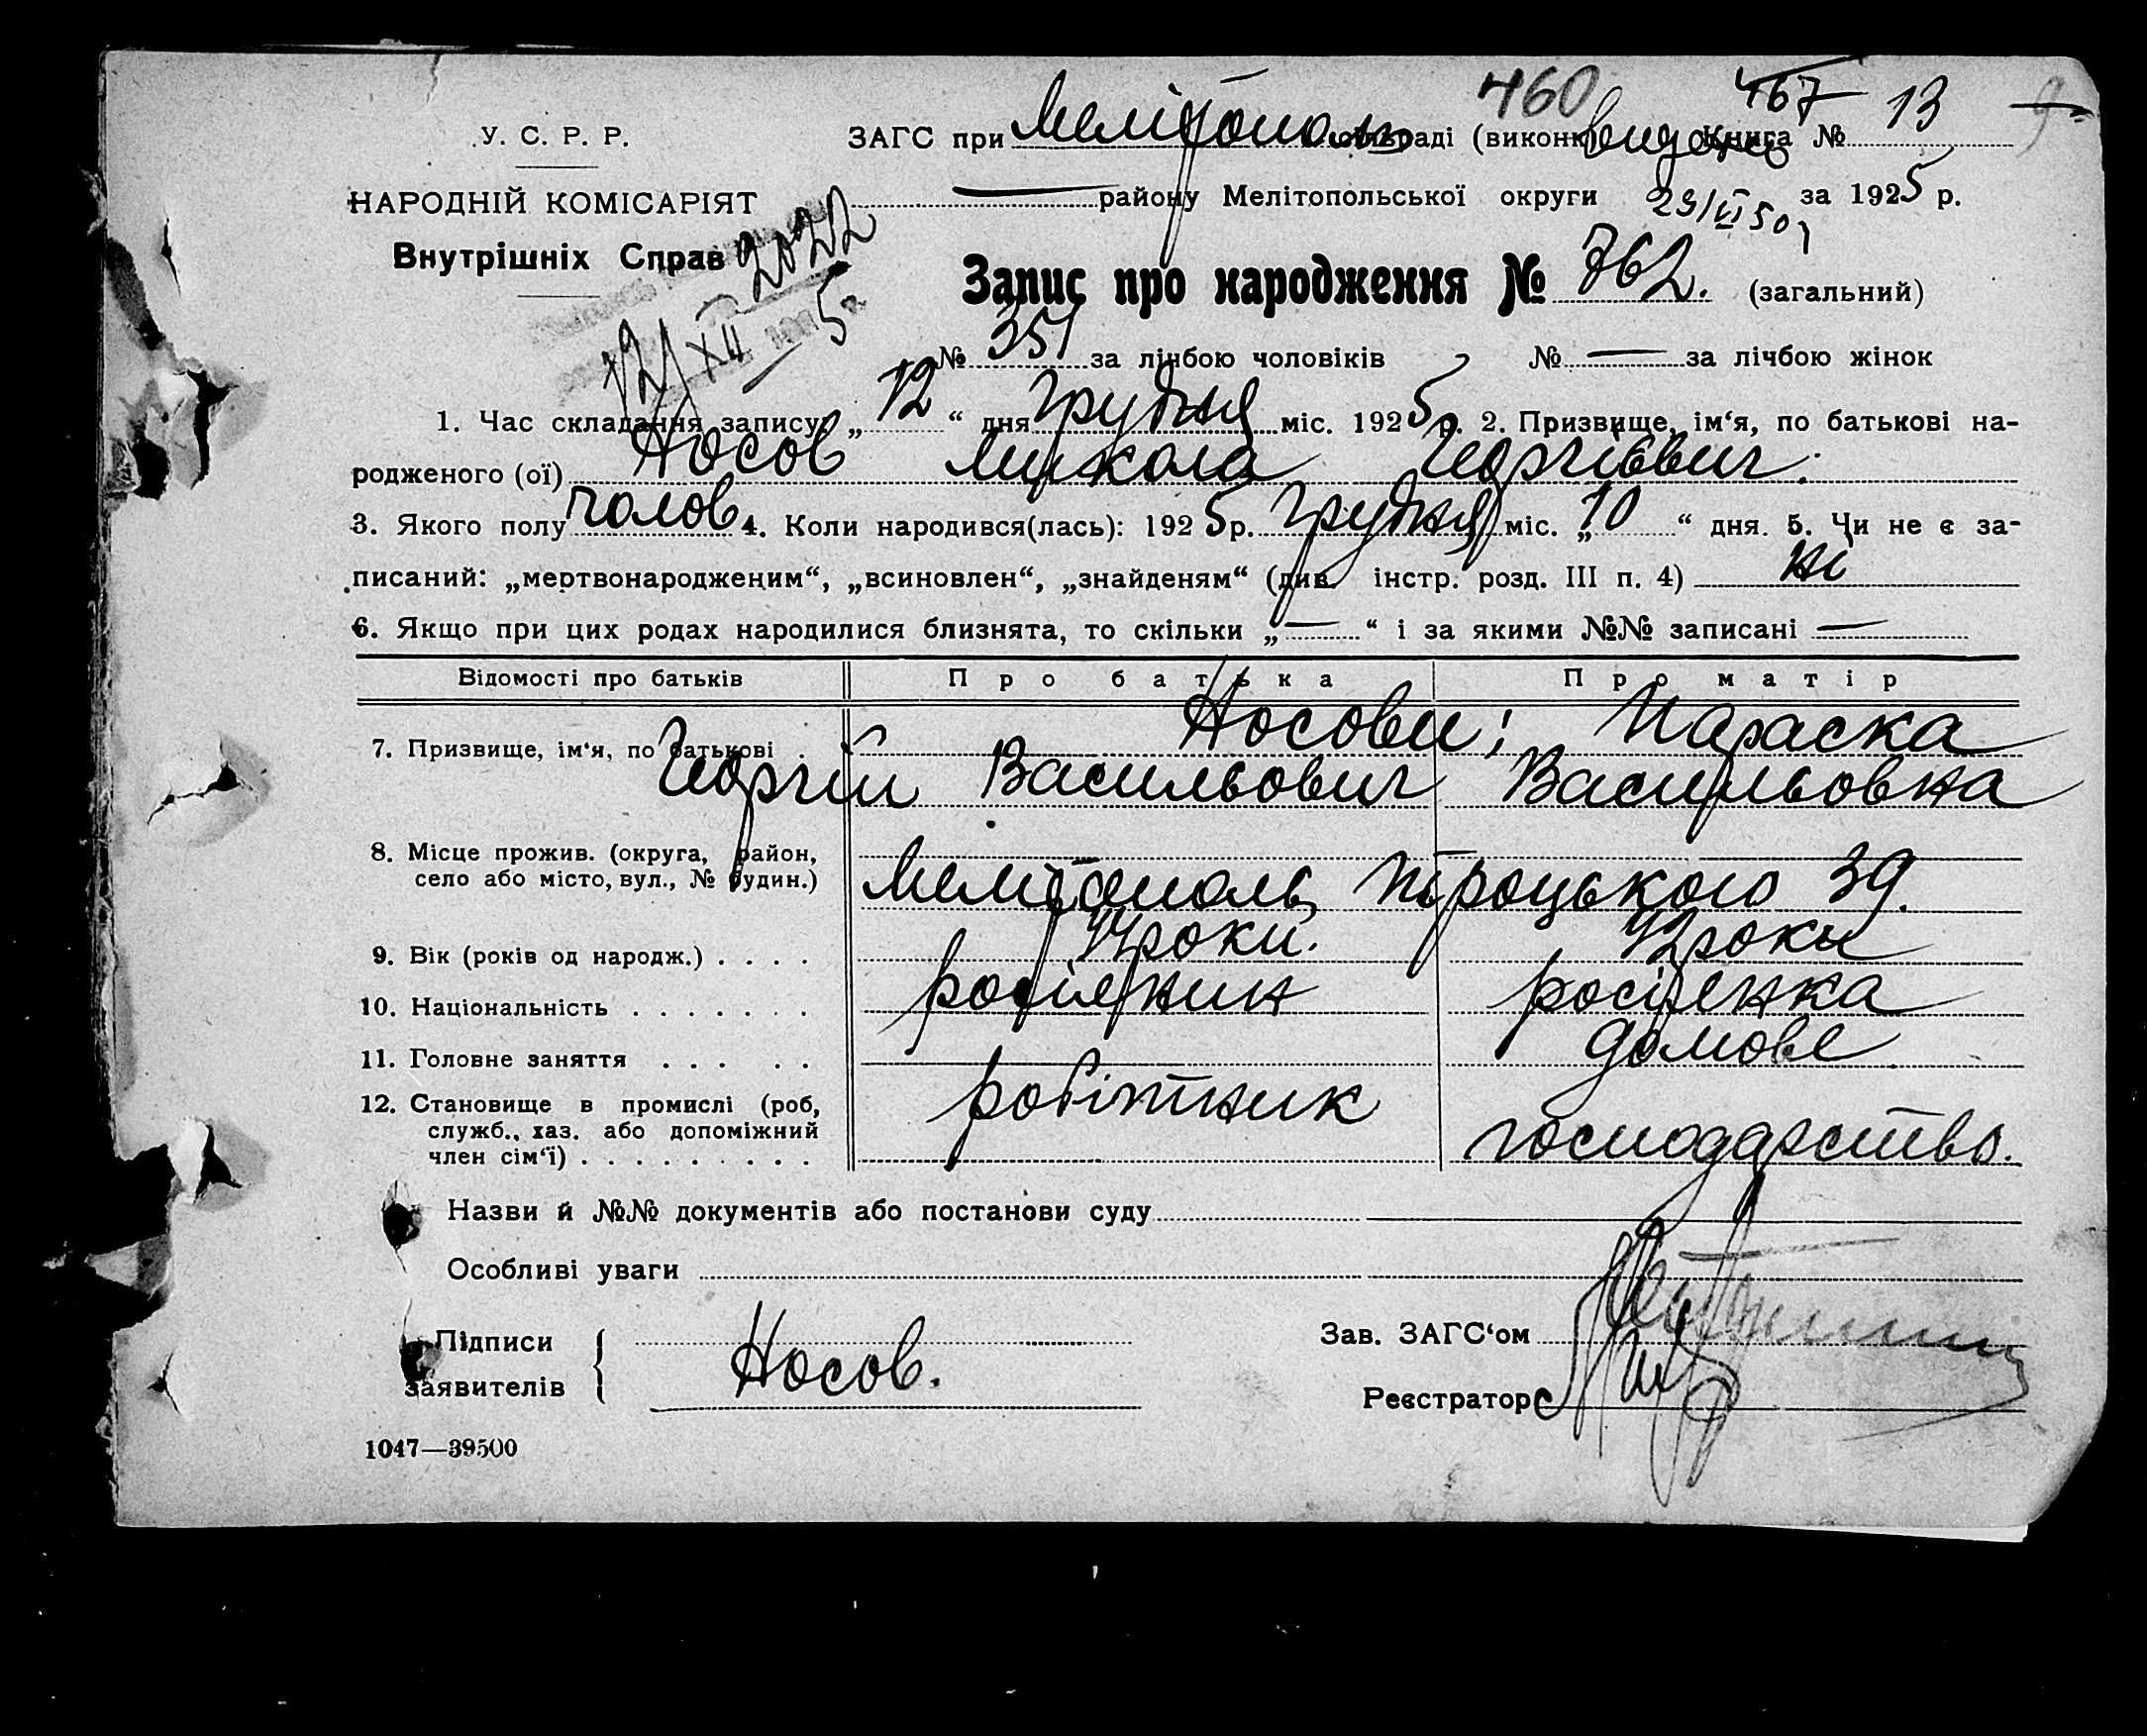 460 467 13 9
У. С. Р. Р. ЗАГС при Мелітополь міськраді (виконк) видано Книга №
НАРОДНІЙ КОМІСАРІЯТ — району Мелітопольської округи 29/VI 50 за 1925 р.
Внутрішніх Справ 2022
Запис про народження № 762. (загальний)
12/XII 5
№ 351 за лічбою чоловіків № — за лічбою жінок
1. Час складання запису: „ 12 “ дня грудня міс. 1925 р. 2. Призвище, ім‘я, по батькові на-
родженого (ої) Носов Микола Георгіевич.
3. Якого полу чолов. 4. Коли народився(лась): 1925 р. грудня міс. „ 10 “ дня. 5. Чи не є за-
писаний: „мертвонародженим“, „всиновлен“, „знайденям“ (див. інстр. розд. III п. 4) ні
6. Якщо при цих родах народилися близнята, то скільки „ — “ і за якими №№ записані —
Відомості про батьків Про батька Про матір
7. Призвище, ім‘я, по батькові . Носови; Параска
Георгій Васильович Васильовна
8. Місце прожив. (округа, район,
село або місто, вул., № будин.) Мелітополь, Троцького 39.
9. Вік (років од народж.) . . . . роки. 42 роки
10. Національність . . . . . . . росіянин росіянка
11. Головне заняття . . . . . домове
12. Становище в промислі (роб, робітник
служб., хаз. або допоміжний господарство.
член сім‘ї) . . . . . . . . .
Назви й №№ документів або постанови суду
Особливі уваги
Підписи Зав. ЗАГС‘ом
заявителів { Носов.
Реєстратор
1047—39500